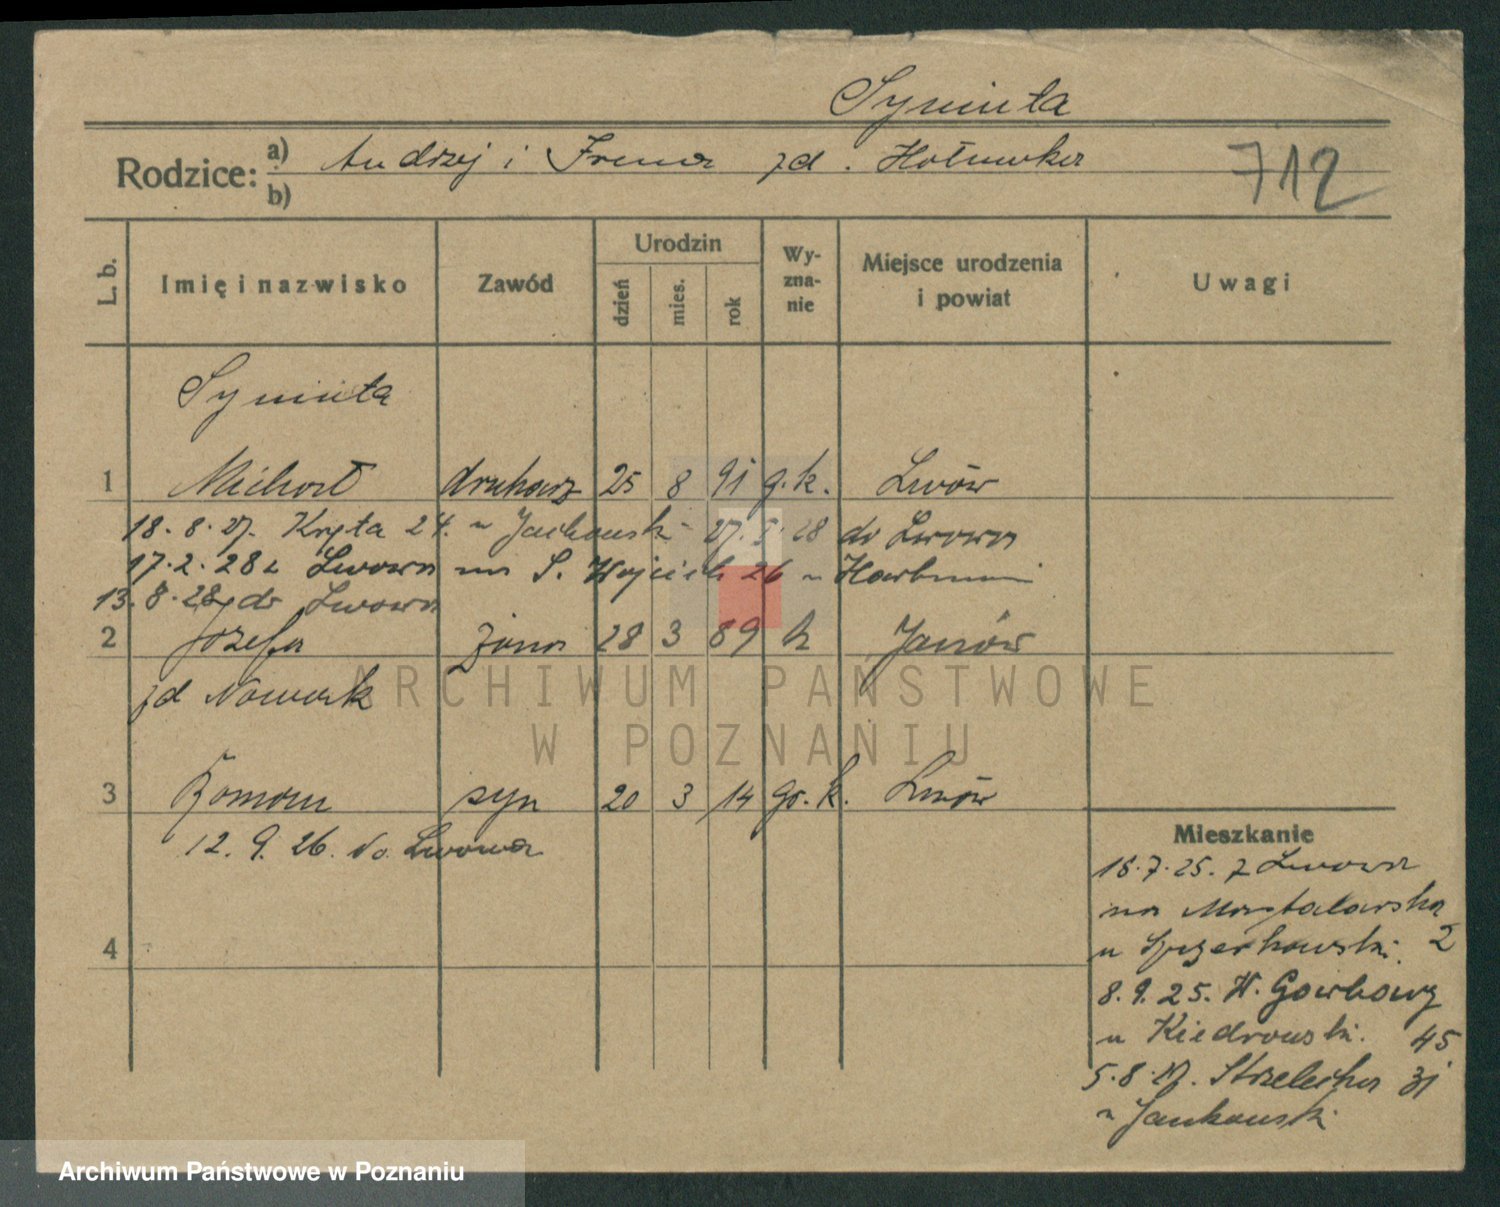 Syniuta
Rodzice: a) Andrzej i Irena zd. Hołu
b)
712
L. b. Imię i nazwisko Zawód Urodzin dzień mies. rok Wy-zna-nie Miejsce urodzenia i powiat Uwagi
Syniuta
1 Michał drukarz 25 8 91 g. k. Lwów
18. 8. 27. Kręta 24. u Jackowski 27. 1. 28 do Lwowa
17. 2. 28 z Lwowa na S. Wojciech 26 u
13. 8. 28 do Lwowa
2 Józefa żona 28 3 89 k Janów
zd Nowak
ARCHIWUM PAŃSTWOWE
W POZNANIU
3 Roman syn 20 3 14 gr. k. Lwów
12. 9. 26. do Lwowa
4
Mieszkanie
18. 7. 25. z Lwowa
na Masztalarska
u 2
8. 9. 25. W. Garbary
u Kiedrowski. 45
5. 8. 27. Strzelecka 31
u Jankowski
Archiwum Państwowe w Poznaniu